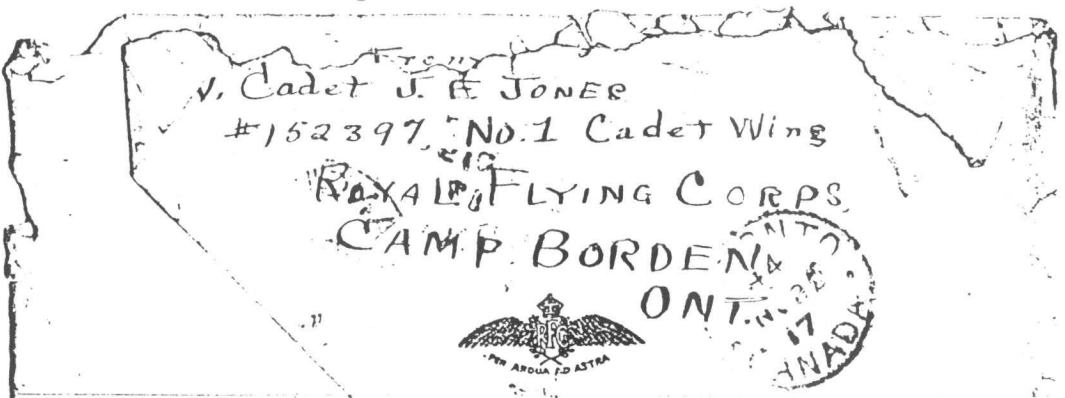 From
Cadet J. E. JONES
#152397, No. 1 Cadet Wing
ROYAL FLYING CORPS
CAMP BORDEN
ONT.
RFC
PER ARDUA AD ASTRA
17
CANADA